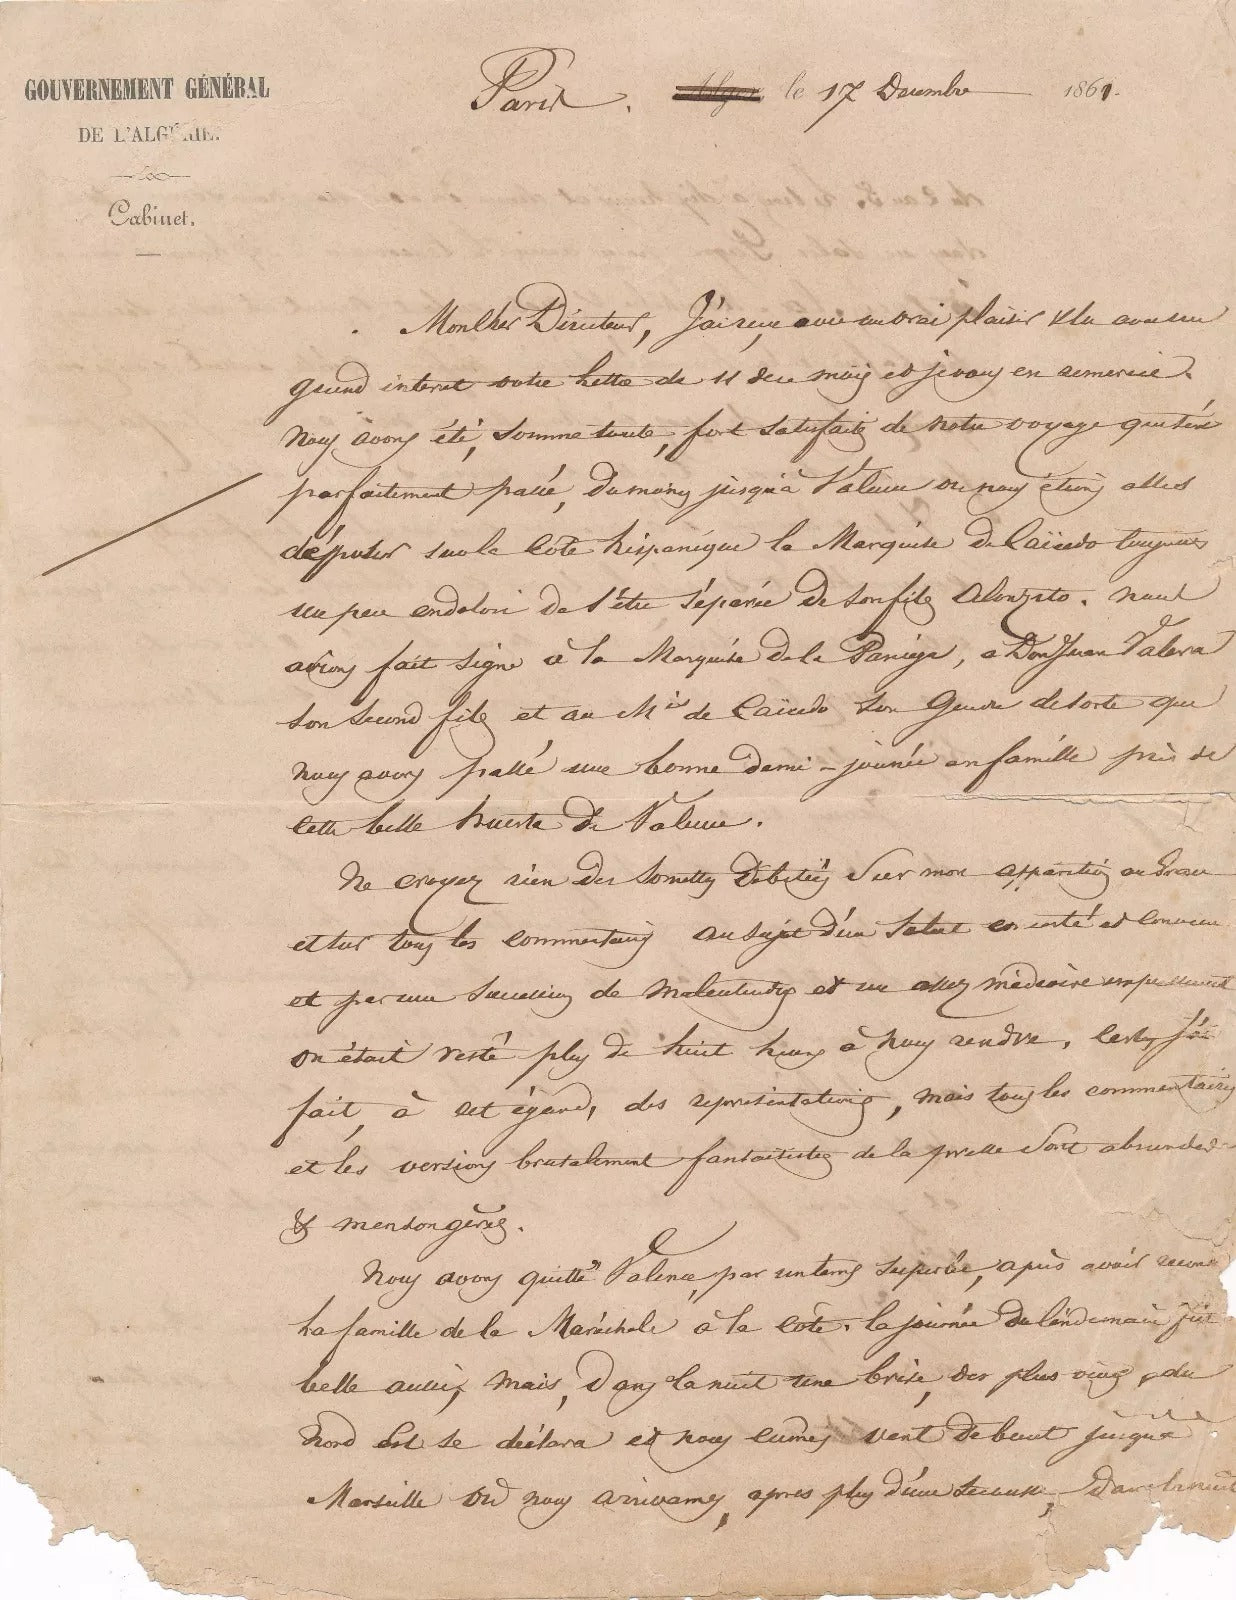 GOUVERNEMENT GÉNÉRAL
DE L'ALGÉRIE.
Cabinet.
Paris. Alger, le 17 Decembre 1861.
Mon Cher Directeur, J'ai reçu, avec un vrai plaisir & lu avec un
grand interet votre lettre de 11 de ce mois et je vous en remercie.
Nous avons été, somme toute, fort satisfaits de notre voyage qui s'est
parfaitement passé, du moins jusqu'à Valence où nous étions allés
déposer sur la côte hispanique la Marquise de Caïcedo toujours
un peu endolori de l'être séparée de son fils Alonzito. nous
avions fait signe à la Marquise de la Paniega, a Don Juan Valera
son second fils et au Mis de Caïcedo son Gendre de sorte que
nous avons passé une bonne demi-journée en famille près de
cette belle huerta de Valence.
Ne croyez rien des sornettes débitées sur mon apparition au Grau
et sur tous les commentaires au sujet d'un salut et convenu
et par une succession de malentendus et un assez médiocre empressement
on était resté plus de huit heures à nous rendre. Certes, j'ai
fait, à cet égard, des représentations, mais tous les commentaires
et les versions brutalement fantaisistes de la presse sont absurdes
& mensongères.
Nous avons quitté Valence, par un tems superbe, après avoir remis
la famille de la Maréchale à la côte. la journée du lendemain fut
belle aussi, mais, dans la nuit une brise, des plus vives, du
Nord Est se déclara et nous eûmes vent debout jusqu'à
Marseille où nous arrivames, après plus d'une secousse, dans la nuit